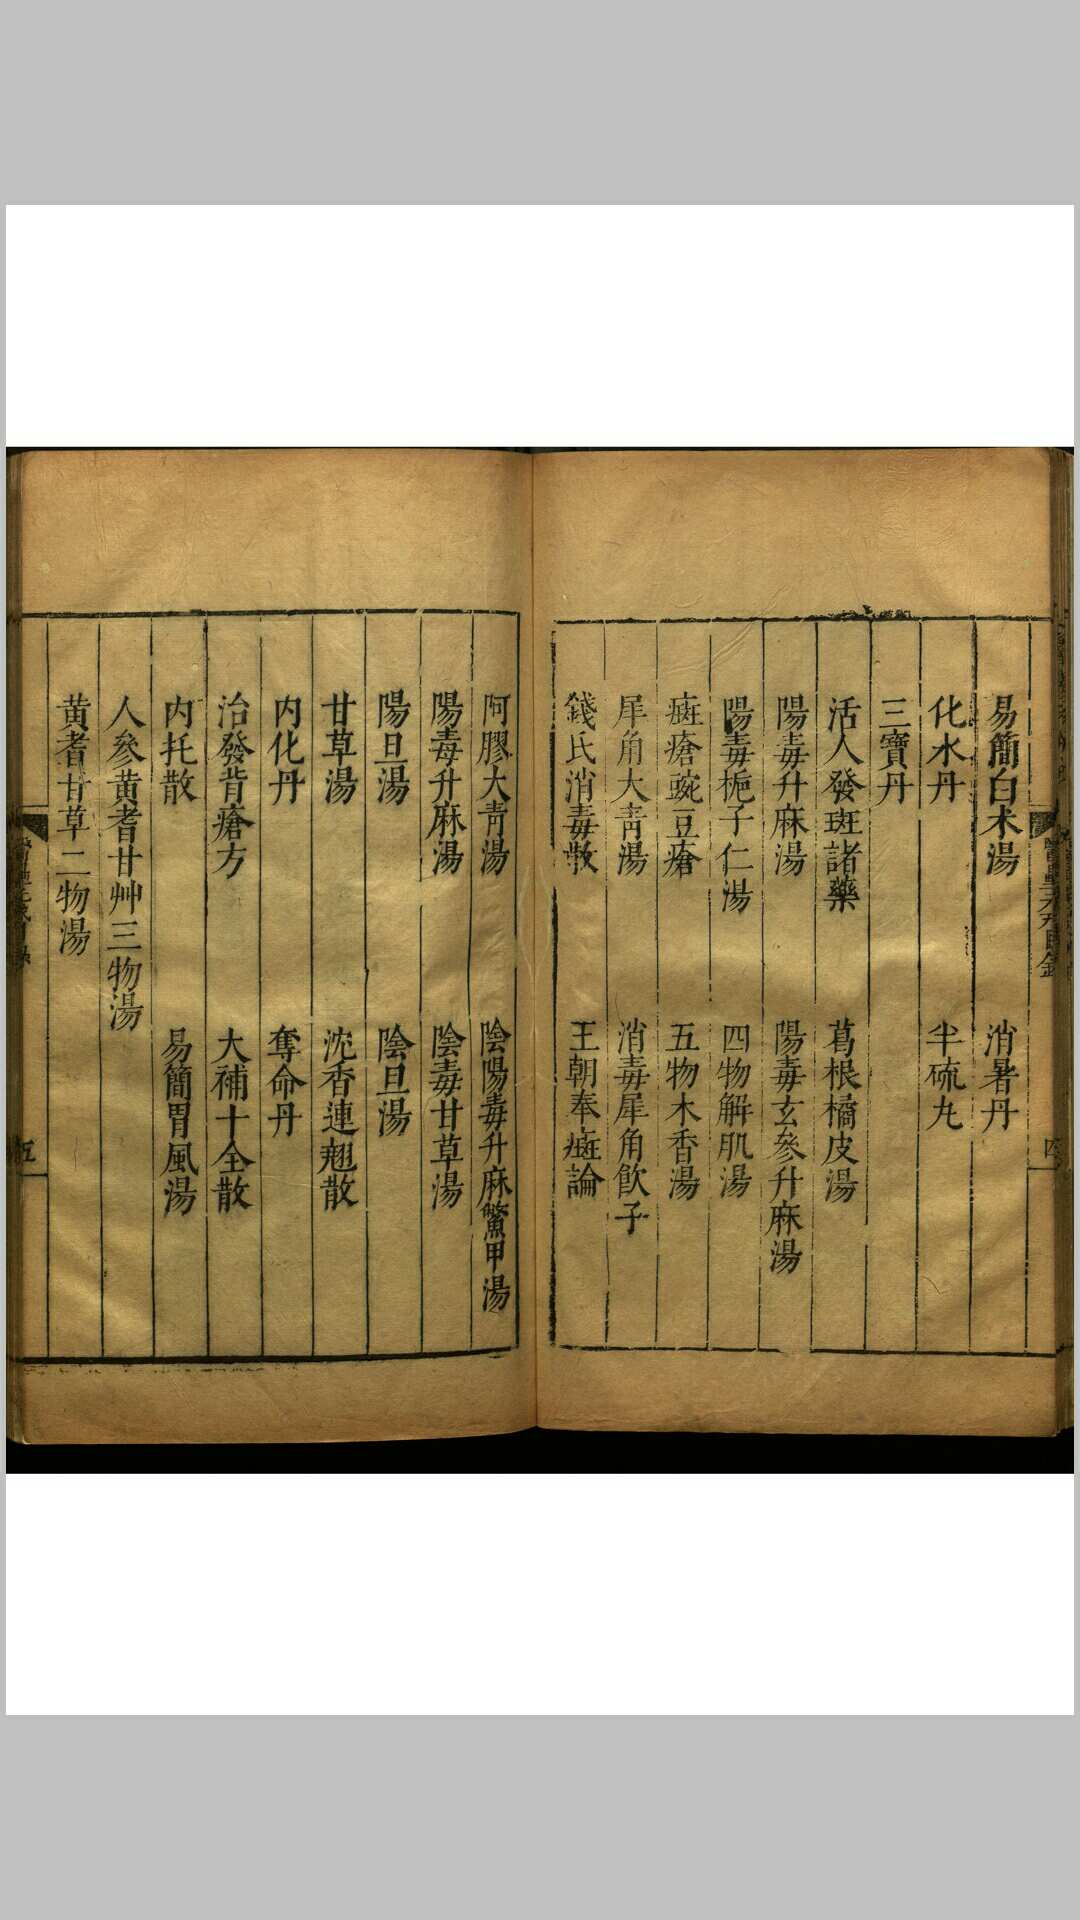 易簡白术湯　消暑丹
化水丹　半硫丸
三寶丹
活人發斑諸藥　葛根橘皮湯
陽毒升麻湯　陽毒玄參升麻湯
陽毒梔子仁湯　四物解肌湯
癍瘡豌豆瘡　五物木香湯
犀角大青湯　消毒犀角飲子
錢氏消毒散　王朝奉癍論
四
阿膠大青湯　陰陽毒升麻鱉甲湯
陽毒升麻湯　陰毒甘草湯
陽旦湯　陰旦湯
甘草湯　沈香連翹散
内化丹　奪命丹
治發背瘡方　大補十全散
内托散　易簡胃風湯
人參黄耆甘艸三物湯
黄耆甘草二物湯
五